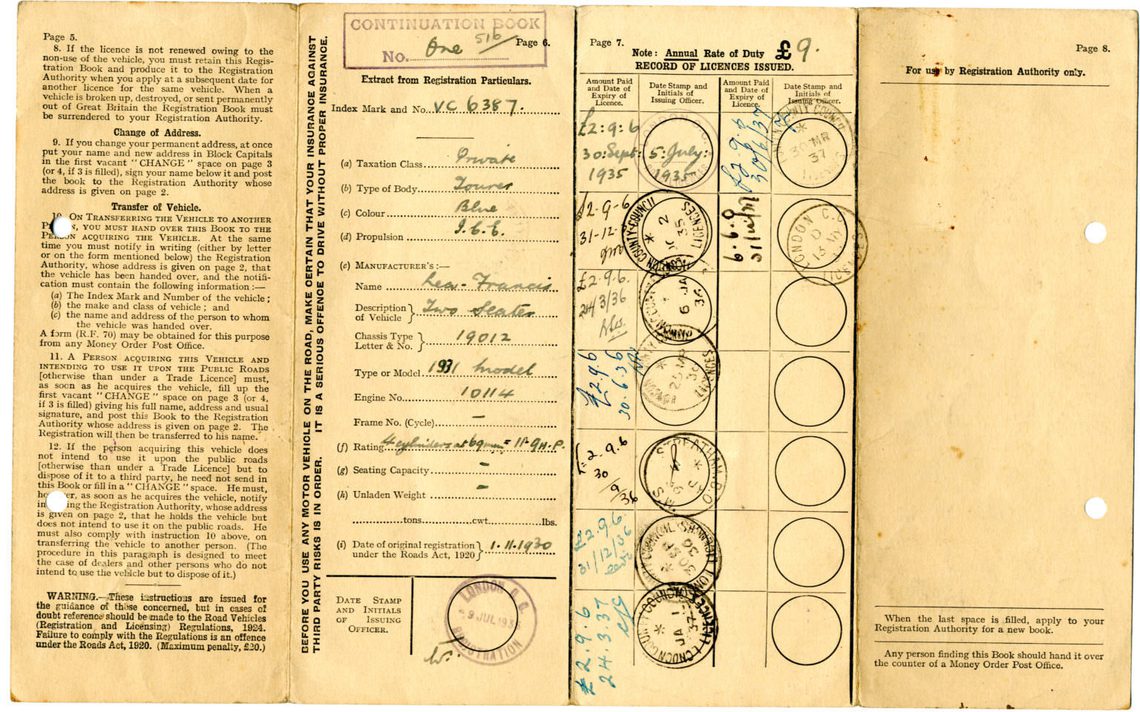 Page 5.
8. If the licence is not renewed owing to the
non-use of the vehicle, you must retain this Regis-
tration Book and produce it to the Registration
Authority when you apply at a subsequent date for
another licence for the same vehicle. When a
vehicle is broken up, destroyed, or sent permanently
out of Great Britain the Registration Book must
be surrendered to your Registration Authority.
Change of Address.
9. If you change your permanent address, at once
put your name and new address in Block Capitals
in the first vacant "CHANGE" space on page 3
(or 4, if 3 is filled), sign your name below it and post
the book to the Registration Authority whose
address is given on page 2.
Transfer of Vehicle.
ON TRANSFERRING THE VEHICLE TO ANOTHER
YOU MUST HAND OVER THIS BOOK TO THE
PERSON ACQUIRING THE VEHICLE. At the same
time you must notify in writing (either by letter
or on the form mentioned below) the Registration
Authority, whose address is given on page 2, that
the vehicle has been handed over, and the notifi-
cation must contain the following information :—
(a) The Index Mark and Number of the vehicle ;
(b) the make and class of vehicle ; and
(c) the name and address of the person to whom
the vehicle was handed over.
A form (R.F. 70) may be obtained for this purpose
from any Money Order Post Office.
11. A PERSON ACQUIRING THIS VEHICLE AND
INTENDING TO USE IT UPON THE PUBLIC ROADS
[otherwise than under a Trade Licence] must,
as soon as he acquires the vehicle, fill up the
first vacant "CHANGE" space on page 3 (or 4,
if 3 is filled) giving his full name, address and usual
signature, and post this Book to the Registration
Authority whose address is given on page 2. The
Registration will then be transferred to his name.
12. If the person acquiring this vehicle does
not intend to use it upon the public roads
[otherwise than under a Trade Licence] but to
dispose of it to a third party, he need not send in
this Book or fill in a "CHANGE" space. He must,
as soon as he acquires the vehicle, notify
the Registration Authority, whose address
is given on page 2, that he holds the vehicle but
does not intend to use it on the public roads. He
must also comply with instruction 10 above, on
transferring the vehicle to another person. (The
procedure in this paragraph is designed to meet
the case of dealers and other persons who do not
intend to use the vehicle but to dispose of it.)
WARNING.—These instructions are issued for
the guidance of those concerned, but in cases of
doubt reference should be made to the Road Vehicles
(Registration and Licensing) Regulations, 1924.
Failure to comply with the Regulations is an offence
under the Roads Act, 1920. (Maximum penalty, £20.)
BEFORE YOU USE ANY MOTOR VEHICLE ON THE ROAD, MAKE CERTAIN THAT YOUR INSURANCE AGAINST
THIRD PARTY RISKS IS IN ORDER. IT IS A SERIOUS OFFENCE TO DRIVE WITHOUT PROPER INSURANCE.
CONTINUATION BOOK
No. One 516
Page 6.
Extract from Registration Particulars.
Index Mark and No. VC 6387.
(a) Taxation Class Private
(b) Type of Body Tourer
(c) Colour Blue
(d) Propulsion I.C.E.
(e) MANUFACTURER'S :—
Name Lea-Francis
Description of Vehicle } Two Seater
Chassis Type Letter & No. } 19012
Type or Model 1931 model
Engine No. 10114
Frame No. (Cycle) —
(f) Rating 4 cylinders at 69mm = 11.9 H.P.
(g) Seating Capacity —
(h) Unladen Weight —
tons cwt. lbs.
(i) Date of original registration under the Roads Act, 1920 } 1.11.1930
DATE STAMP
AND INITIALS
OF ISSUING
OFFICER.
LONDON C.C.
REGISTRATION
Page 7.
Note : Annual Rate of Duty £9.
RECORD OF LICENCES ISSUED.
Amount Paid and Date of Expiry of Licence.
Date Stamp and Initials of Issuing Officer.
Amount Paid and Date of Expiry of Licence.
Date Stamp and Initials of Issuing Officer.
£2:9:6
30:Sept:
1935
5:July:
1935
£2-9-6
31-12-
LONDON COUNTY COUNCIL
£2.9.6.
24/3/36
6 JA 36
£2 9 6
30.6.36
£2.9.6
30/9/36
STREATHAM B.O.
£2.9.6
31/12/36
£2.9.6
24.3.37
JA 1 37
£2.9.6
30/6/37
30 MR 37
6.9.9
LONDON C.C.
Page 8.
For use by Registration Authority only.
When the last space is filled, apply to your
Registration Authority for a new book.
Any person finding this Book should hand it over
the counter of a Money Order Post Office.